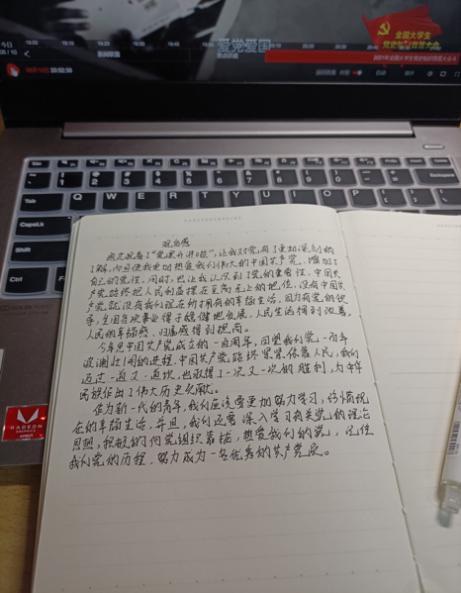 爱党爱国
全国大学生
观后感
我在观看了"党课开讲啦",让我对党有了更加深刻的
了解,而且使我更加热爱我们伟大的中国共产党,增加了
自己的党性,同时,也让我认识到了党的重要性,中国共
产党始终把人民利益摆在至高无上的地位,没有中国共
产党就没有我们现在所拥有的幸福生活,因为有党的领
导,全国各项事业得于稳健地发展,人民生活得到改善,
人民的幸福感,归属感得到提高。
今年是中国共产党成立的一百周年,回望我们党一百年
波澜壮阔的进程,中国共产党始终紧紧依靠人民,我们
走过一道又一道坎,也取得了一次又一次的胜利,为中华
民族作出了伟大历史贡献。
作为新一代的青年,我们应该要更加努力学习,珍惜现
在的幸福生活,并且,我们还要深入学习有关党的政治
思想,积极的向党组织靠拢,热爱我们的党,记住
我们党的历程,努力成为一名优秀的共产党员。
Q W E R T Y U I O P
CapsLk
Shift
RADEON